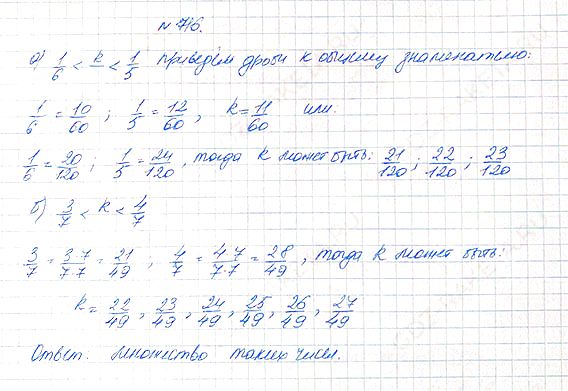 № 716.
а) 1/6 < k < 1/5 приведём дроби к общему знаменателю:
1/6 = 10/60 ; 1/5 = 12/60 , k = 11/60 или.
1/6 = 20/120 ; 1/5 = 24/120 , тогда k может быть: 21/120 ; 22/120 ; 23/120
б) 3/7 < k < 4/7
3/7 = 3·7/7·7 = 21/49 ; 4/7 = 4·7/7·7 = 28/49 , тогда k может быть:
k = 22/49 , 23/49 , 24/49 , 25/49 , 26/49 , 27/49
Ответ. множество таких чисел.